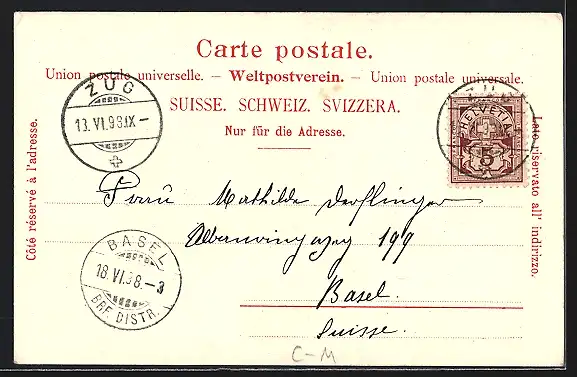 Carte postale.
Union postale universelle. – Weltpostverein. – Union postale universale.
SUISSE. SCHWEIZ. SVIZZERA.
Nur für die Adresse.
Côté réservé à l'adresse.
Lato riservato all' indirizzo.
ZUG
13. VI. 98. IX –
HELVETIA
5
Mathilde
199
Basel.
Suisse.
BASEL
18. VI. 98. – 3
BRF. DISTR.
C-M